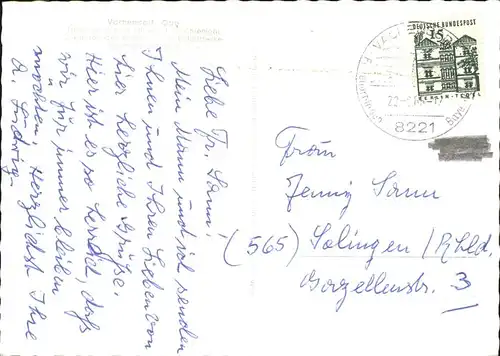 Liebe Fr. Sann!
Mein Mann und ich senden
Ihnen und Ihren Lieben von
hier herzliche Grüße.
Hier ist es so herrlich, daß
wir für immer bleiben
möchten. Herzlichst Ihre
DEUTSCHE BUNDESPOST
15
BERLIN-TEGEL
8221
Frau
Jenny Sann
(565) Solingen / Rhld.
Gazellenstr. 3